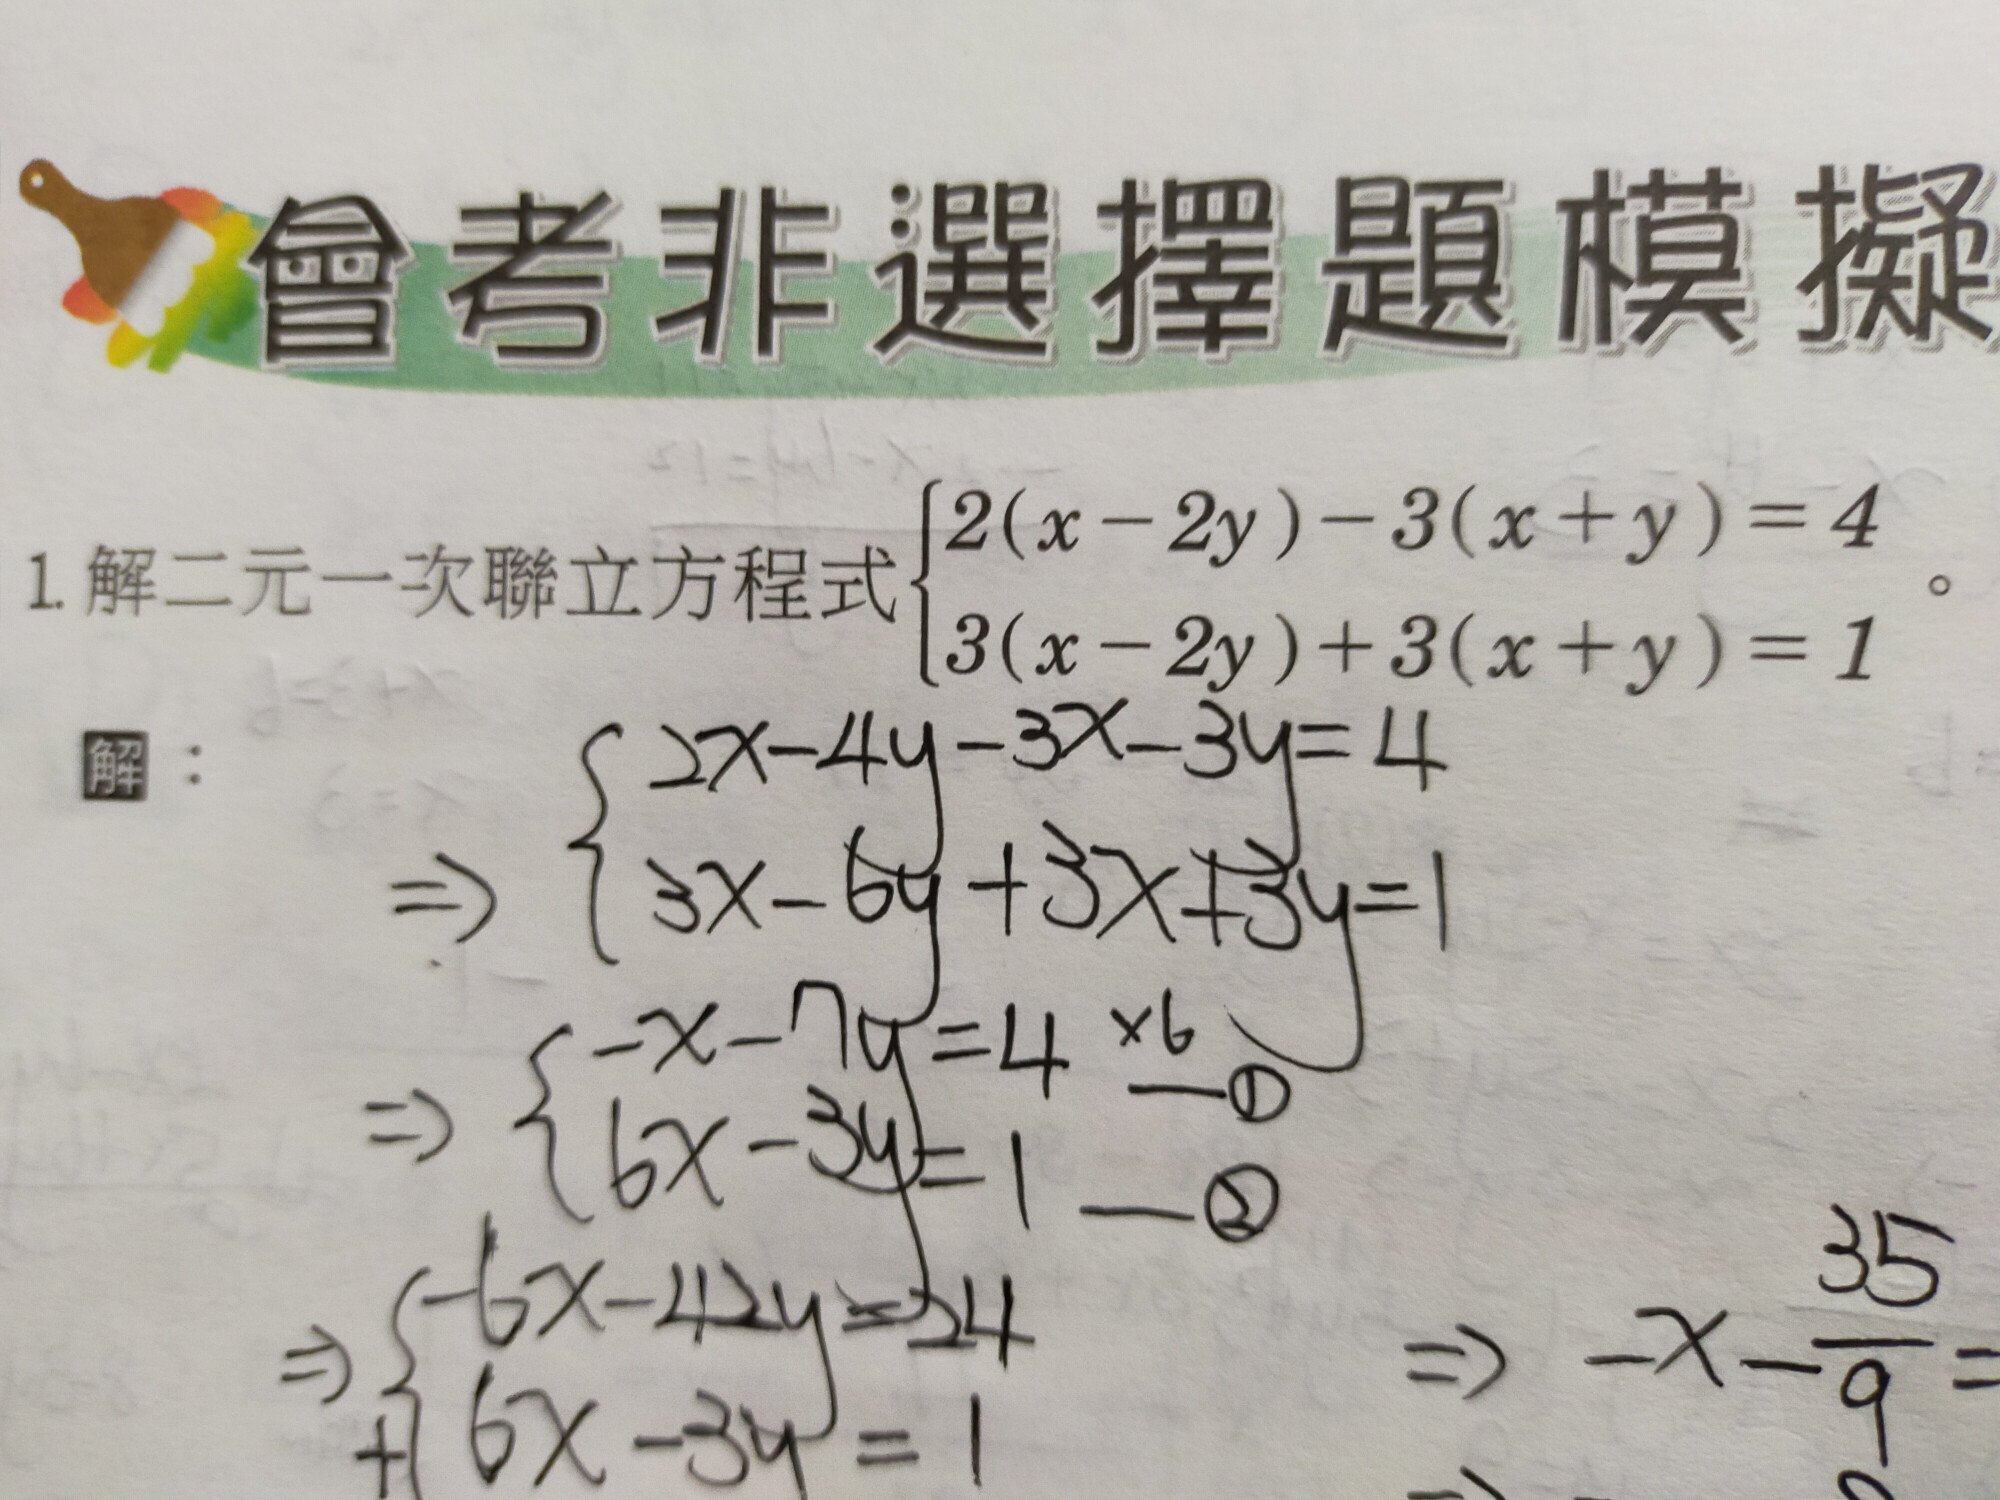 會考非選擇題模擬
1. 解二元一次聯立方程式 { 2(x－2y)－3(x＋y)＝4
3(x－2y)＋3(x＋y)＝1 。
解：
⇒ { 2x-4y-3x-3y=4
3x-6y+3x+3y=1
⇒ { -x-7y=4 ×6 —①
6x-3y=1 —②
⇒ { -6x-42y=24
+ 6x-3y=1
⇒ -x-35/9=